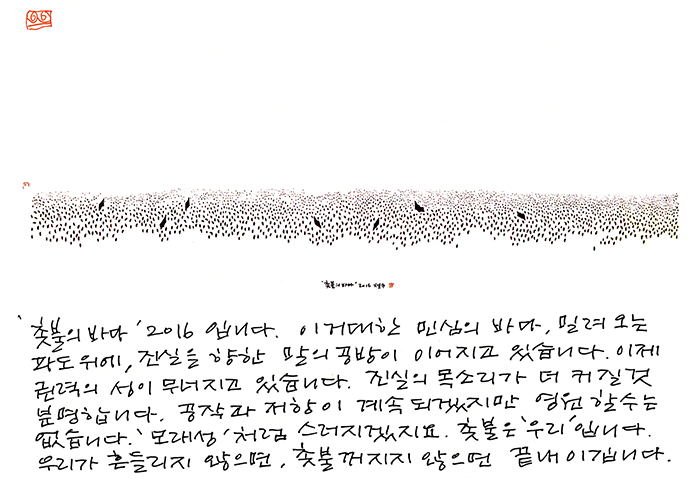 '촛불의 바다' 2016
'촛불의 바다' 2016 입니다. 이 거대한 민심의 바다, 밀려 오는
파도 위에, 진실을 향한 말의 공방이 이어지고 있습니다. 이제
권력의 성이 무너지고 있습니다. 진실의 목소리가 더 커질것
분명합니다. 공작과 저항이 계속 되겠지만 영원 할수는
없습니다. '모래성'처럼 스러지겠지요. 촛불은 '우리'입니다.
우리가 흔들리지 않으면, 촛불 꺼지지 않으면 끝내 이깁니다.